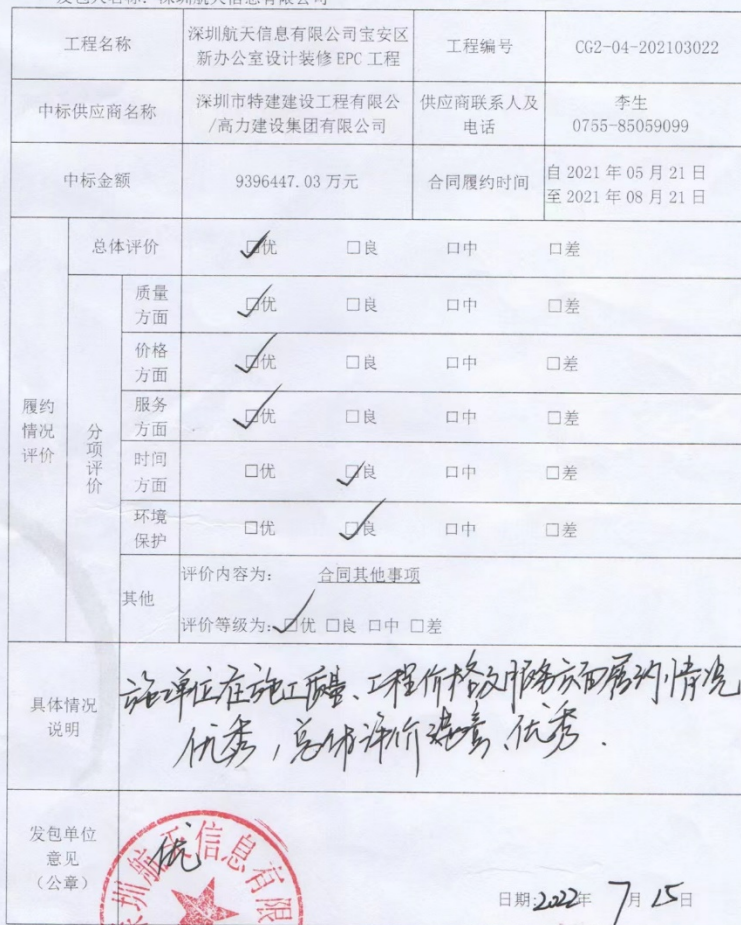 发包人名称：深圳航天信息有限公司
工程名称 深圳航天信息有限公司宝安区新办公室设计装修 EPC 工程 工程编号 CG2-04-202103022
中标供应商名称 深圳市特建建设工程有限公/高力建设集团有限公司 供应商联系人及电话 李生 0755-85059099
中标金额 9396447.03 万元 合同履约时间 自 2021 年 05 月 21 日至 2021 年 08 月 21 日
履约情况评价
总体评价 ☑优 □良 □中 □差
分项评价
质量方面 ☑优 □良 □中 □差
价格方面 ☑优 □良 □中 □差
服务方面 ☑优 □良 □中 □差
时间方面 □优 ☑良 □中 □差
环境保护 □优 ☑良 □中 □差
其他 评价内容为： 合同其他事项
评价等级为：☑优 □良 □中 □差
具体情况说明
施工单位在施工质量、工程价格及服务方面履约情况
优秀，总体评价 优秀．
发包单位意见（公章）
优
深圳航天信息有限
日期:2022年 7月 15日